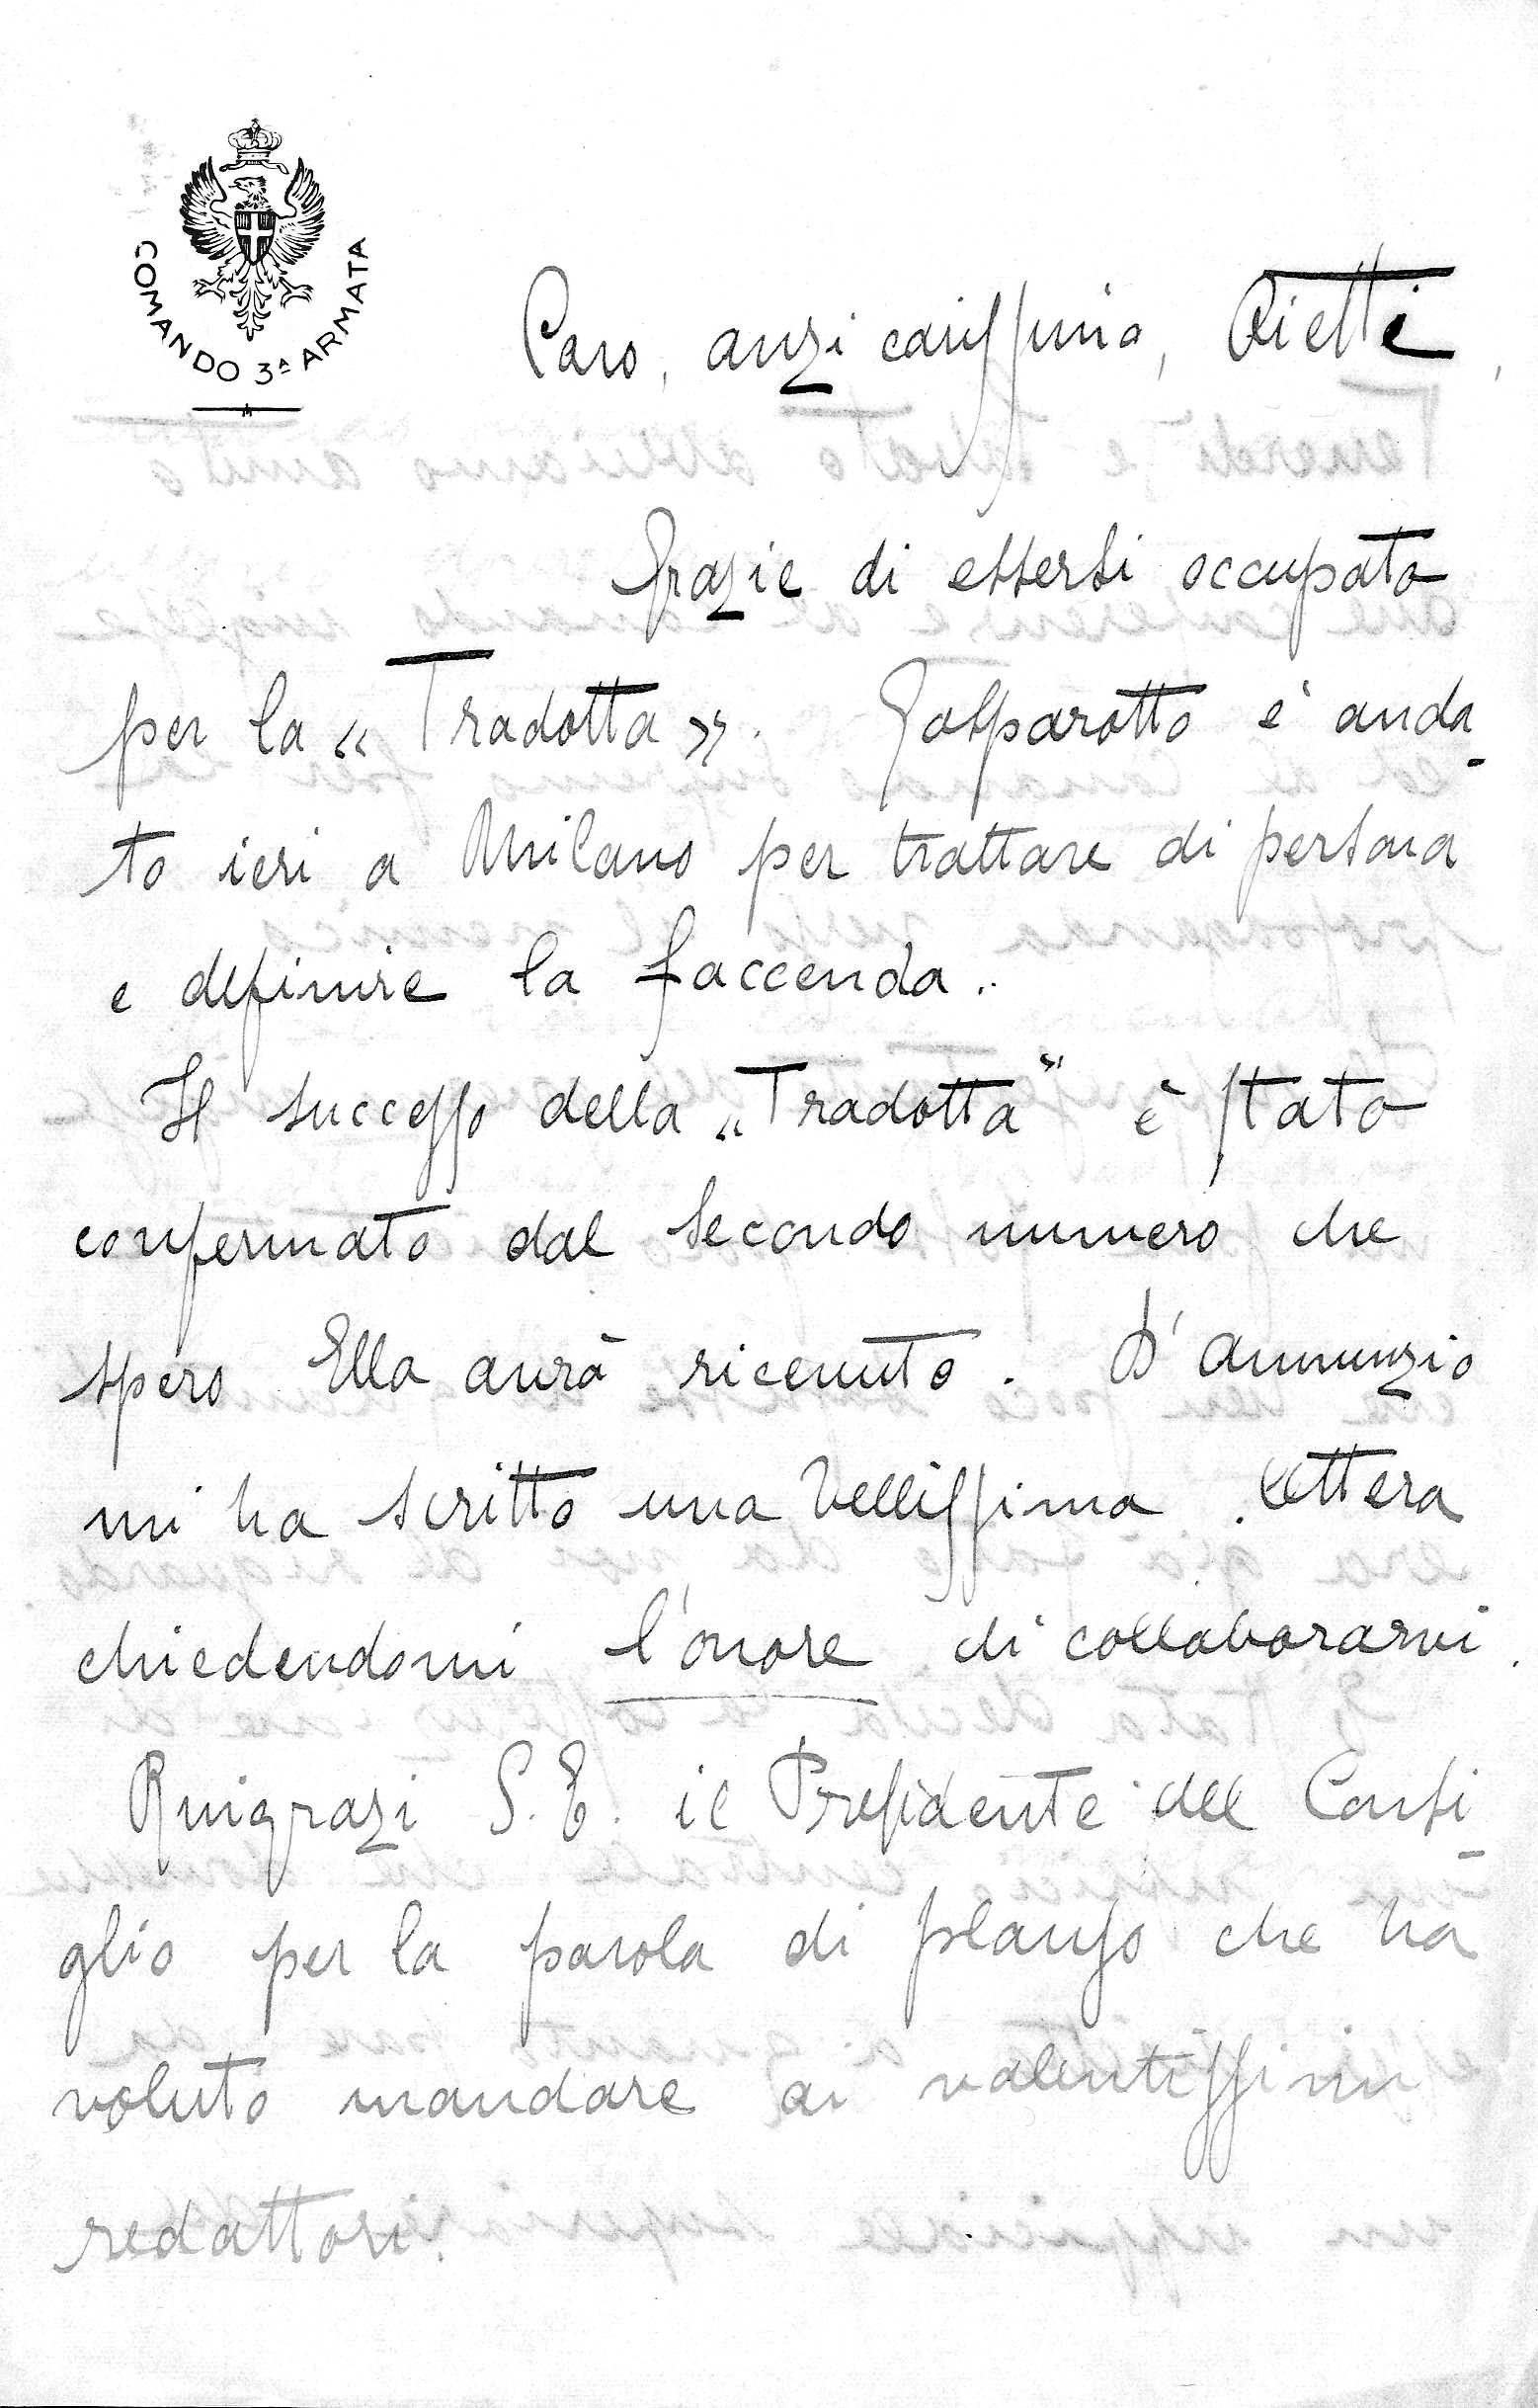 COMANDO 3ª ARMATA
Caro, anzi carissimo, Rietti,
Grazie di essersi occupato
per la « Tradotta ». Gasparotto è anda-
to ieri a Milano per trattare di persona
e definire la faccenda.
Il successo della „Tradotta" è stato
confermato dal secondo numero che
spero Ella avrà ricevuto. D'Annunzio
mi ha scritto una bellissima lettera
chiedendomi l'onore di collaborarvi.
Ringrazi S. E. il Presidente del Consi-
glio per la parola di plauso che ha
voluto mandare ai valentissimi
redattori.